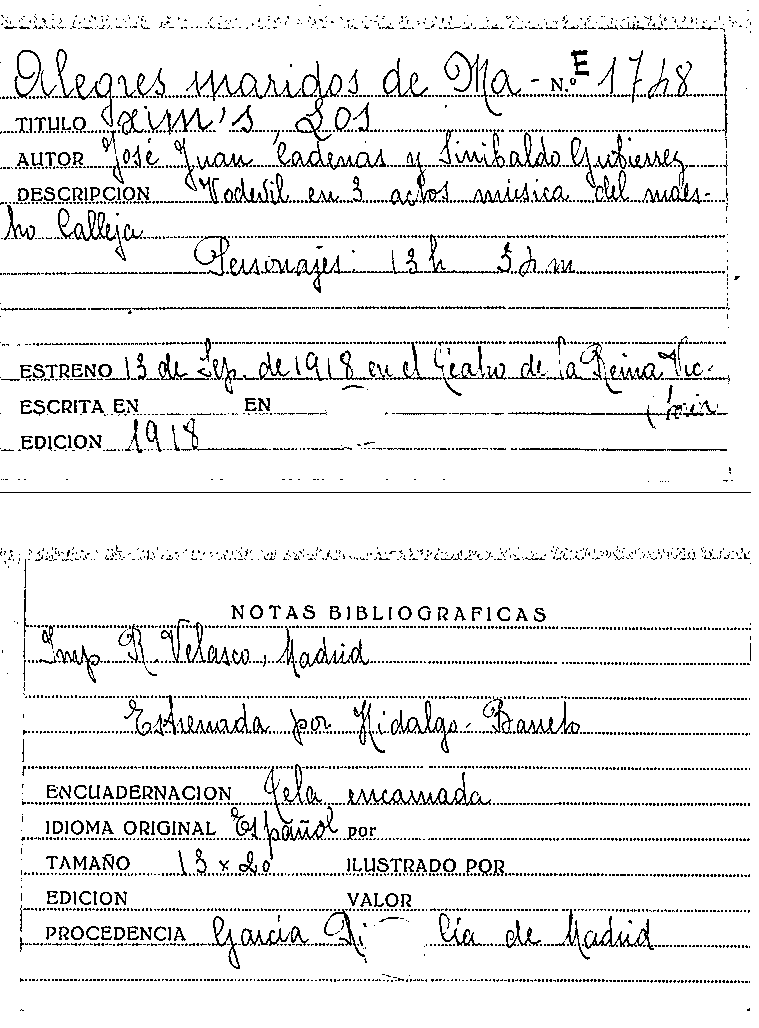 Alegres maridos de Ma- N.º E 1748
TITULO xim's, Los
AUTOR José Juan Cadenas y Sinibaldo Gutierrez
DESCRIPCION Vodevil en 3 actos música del maes-
tro Calleja
Personajes: 13 h.
ESTRENO 13 de Sep. de 1918 en el Teatro de la Reina Vic-
ESCRITA EN EN toria
EDICION 1918
NOTAS BIBLIOGRAFICAS
Imp R. Velasco, Madrid
Estrenada por Hidalgo-Barreto
ENCUADERNACION Tela encarnada
IDIOMA ORIGINAL Español por
TAMAÑO 13 x 20 ILUSTRADO POR
EDICION VALOR
PROCEDENCIA García Cía de Madrid